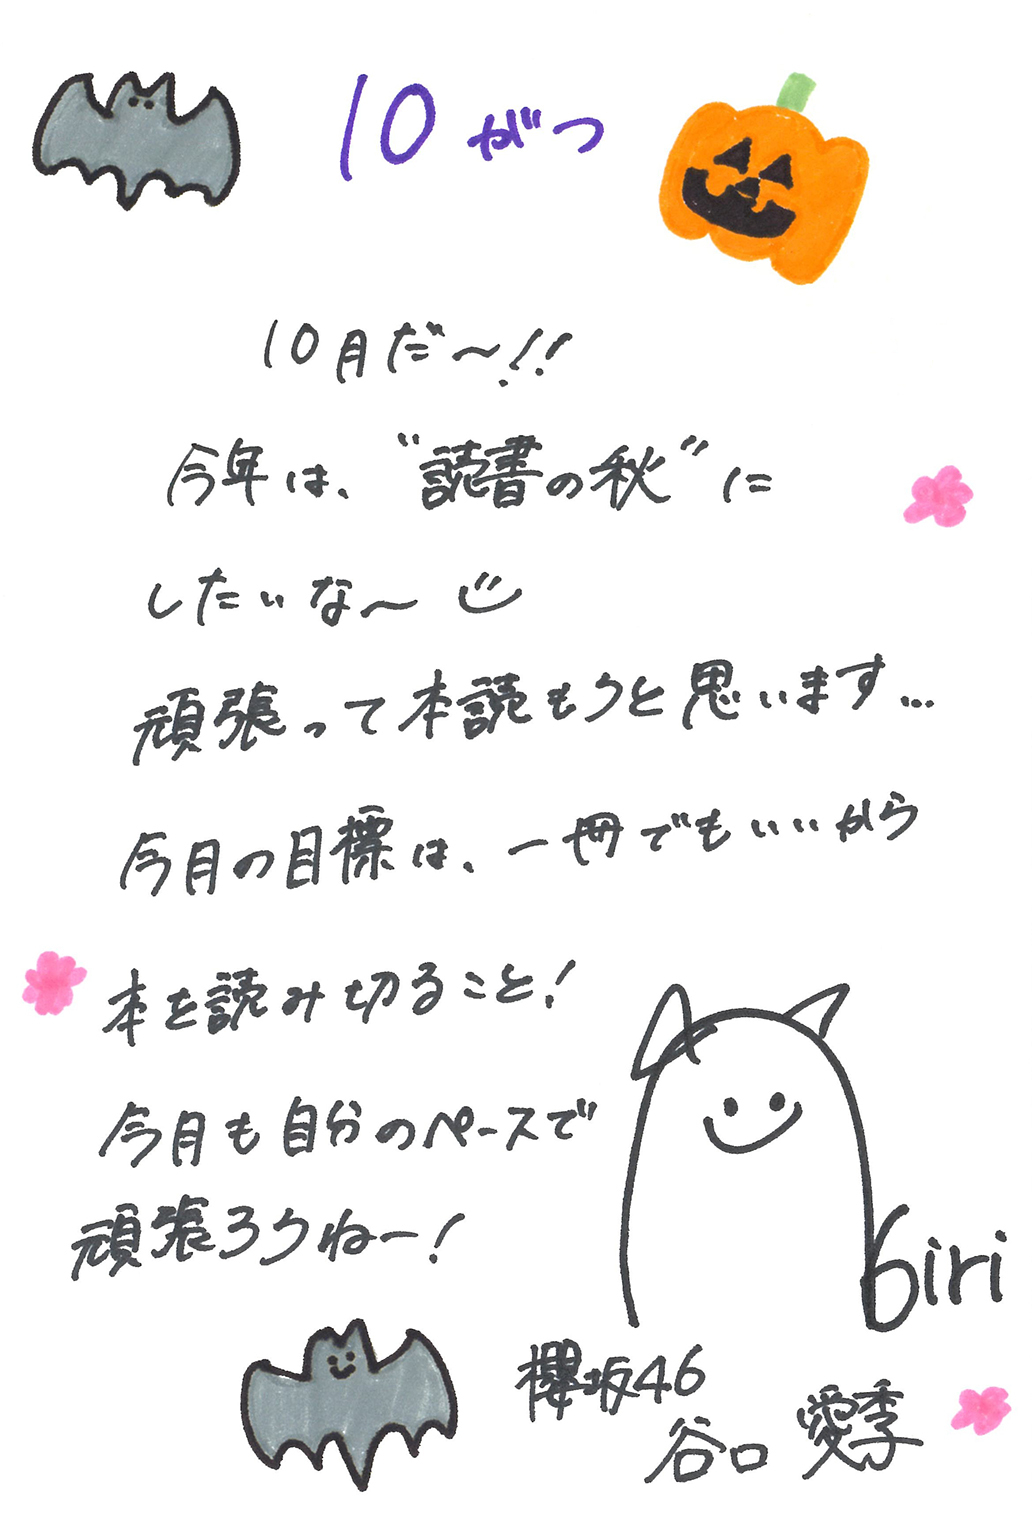 10がつ
10月だ〜!!
今年は、"読書の秋"に
したいな〜
頑張って本読もうと思います...
今月の目標は、一冊でもいいから
本を読み切ること!
今月も自分のペースで
頑張ろうねー!
airi
櫻坂46
谷口 愛季